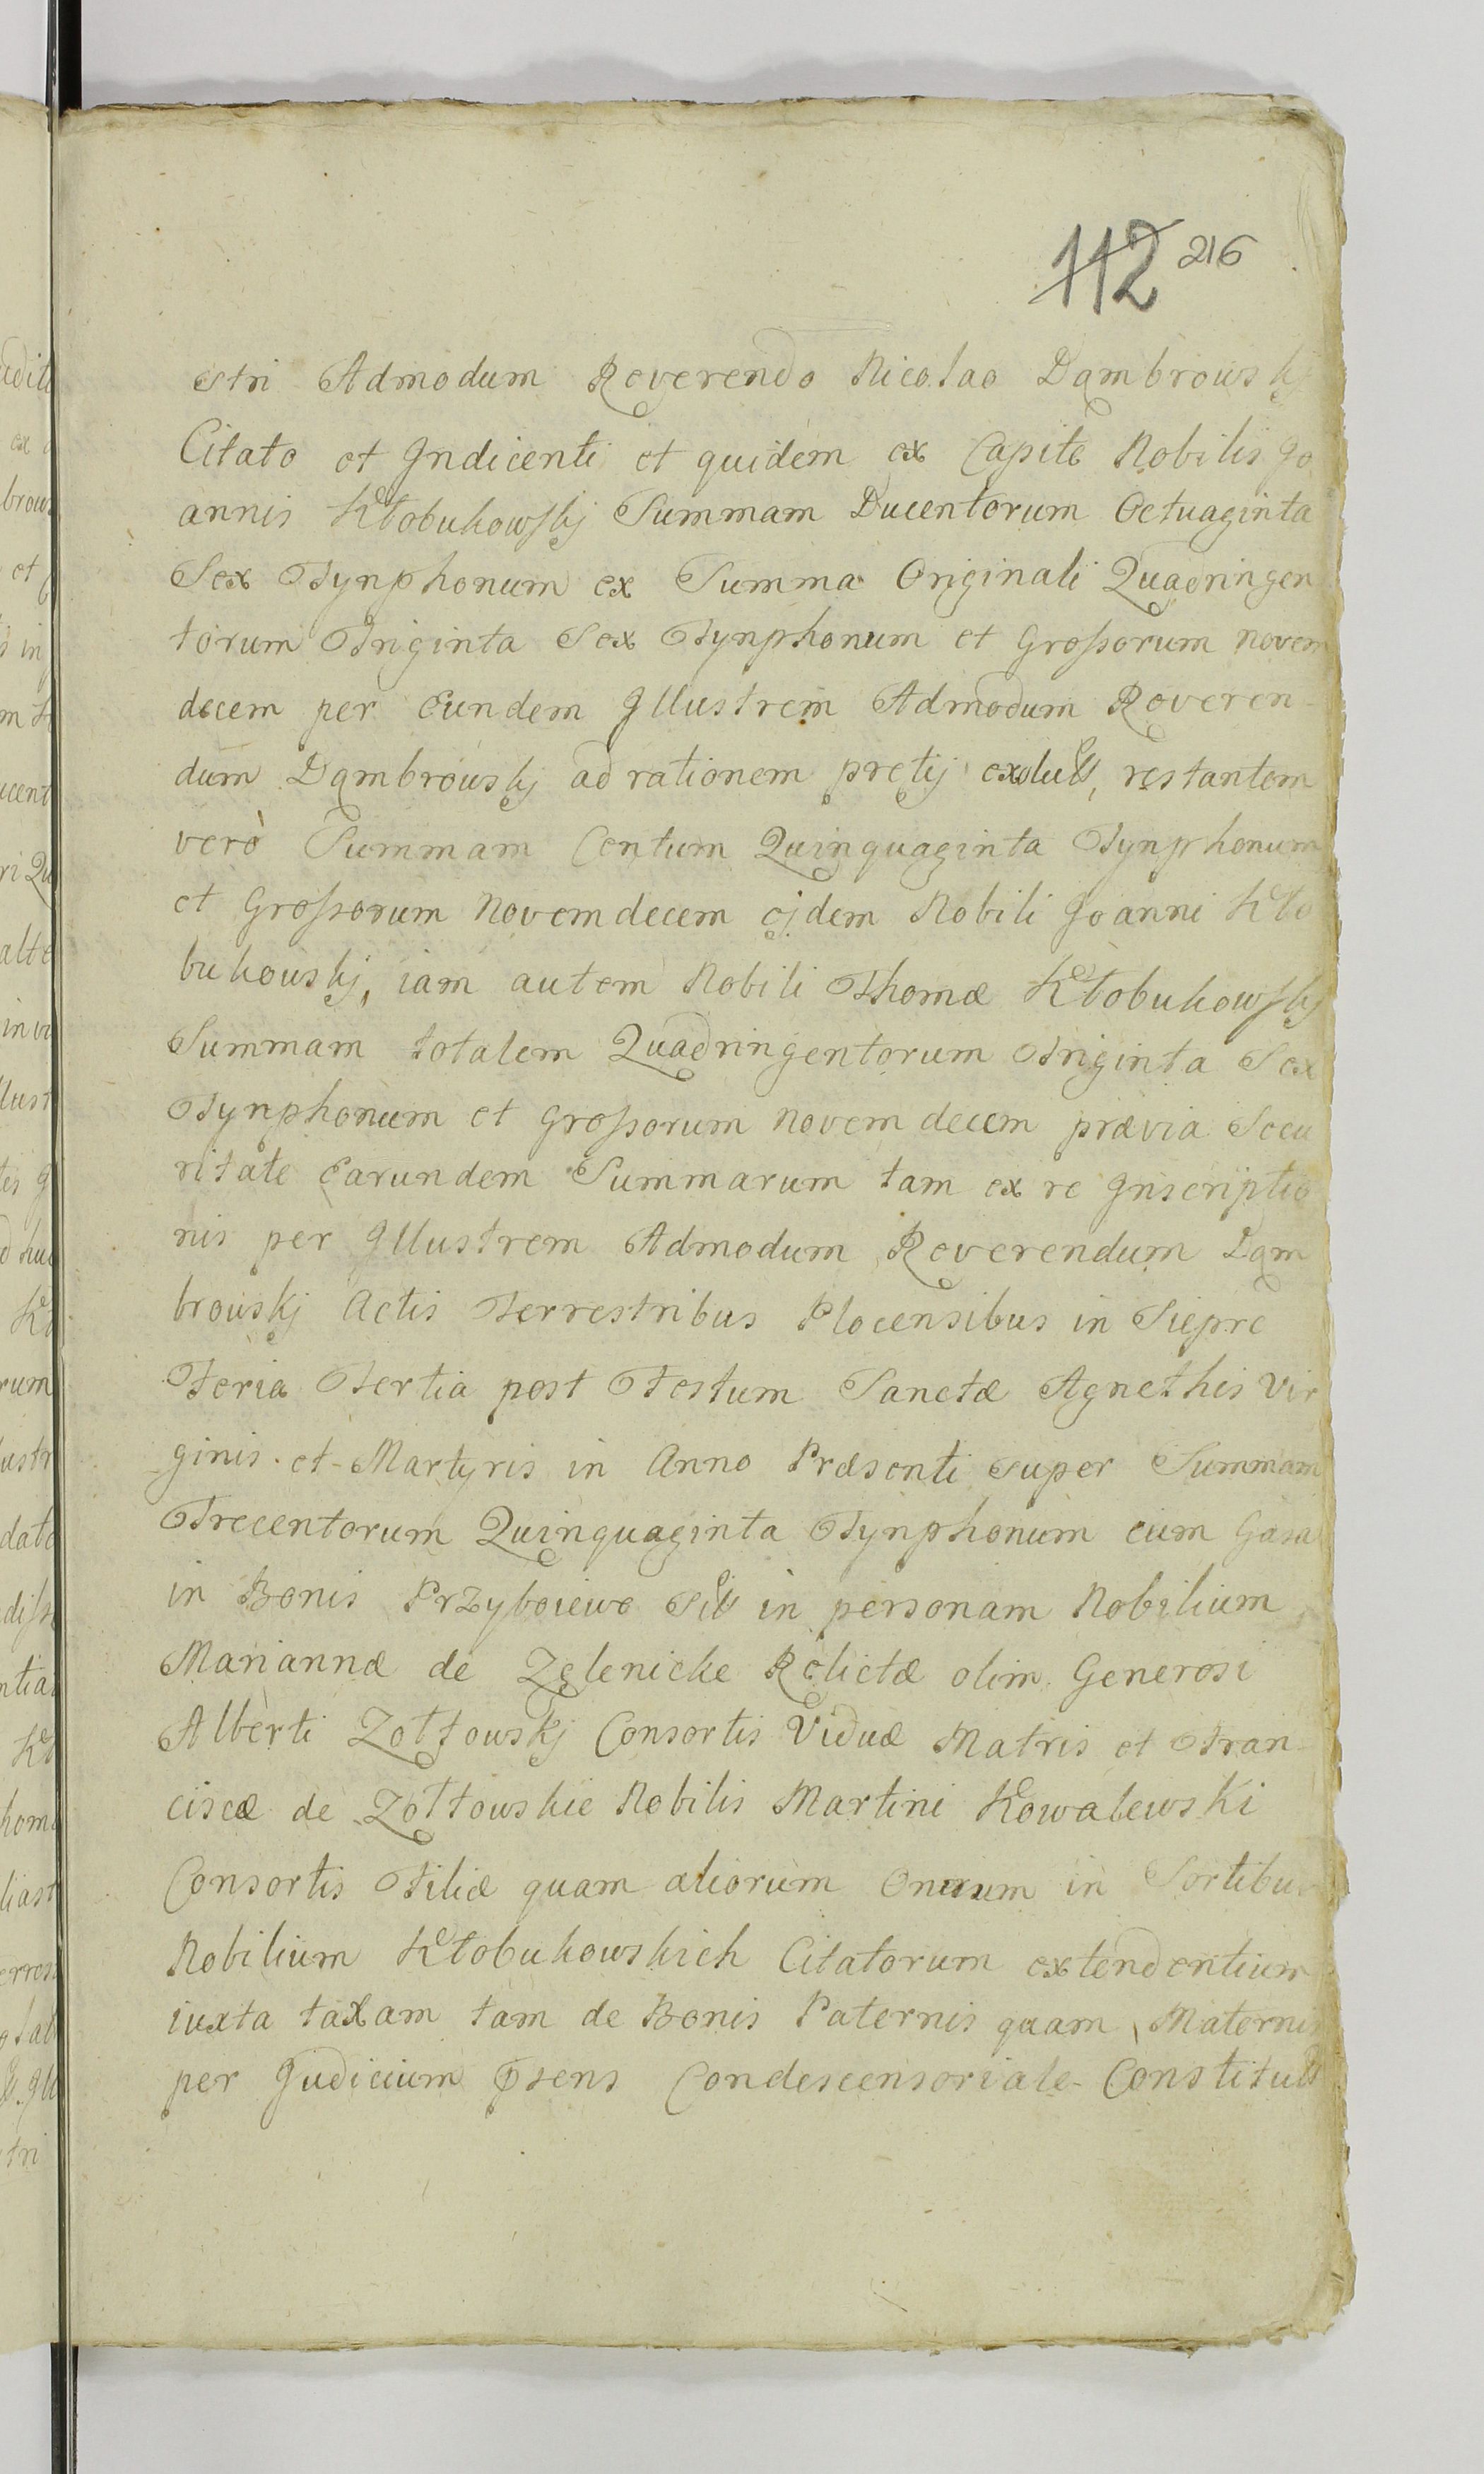 112 216
stri Admodum Reverendo Nicolao Dąmbrowskj
Citato et Indicenti et quidem ex Capite Nobilis Jo
annis Kłobukowskj Summam Ducentorum Octuaginta
Sex Tynphonum ex Summa Originali Quadringen
torum Triginta Sex Tynphonum et Grossorum novem
decem per Eundem Illustrem Admodum Reveren-
dum Dąmbrowskj ad rationem pretij exolu, restantem
verò Summam Centum Quinquaginta Tynphonum
et Grossorum Novemdecem ejdem Nobili Joanni Kło
bukowskj, iam autem Nobili Thomæ Kłobukowskj
Summam totalem Quadringentorum Triginta Sex
Tynphonum et Grossorum Novemdecem prævia Secu
ritate Earundem Summarum tam ex re Inscriptio
nis per Illustrem Admodum Reverendum Dąm
browskj Actis Terrestribus Plocensibus in Sieprc
Feria Tertia post Festum Sanctæ Agnethis Vir
ginis et Martyris in Anno Præsenti super Summam
Trecentorum Quinquaginta Tynphonum cum Gasa
in Bonis Przyboiewo Sit in personam Nobilium
Mariannæ de Zelenickie Relictæ olim Generosi
Alberti Zołtowskj Consortis Viduæ Matris et Fran-
ciscæ de Zołtowskie Nobilis Martini Kowalewski
Consortis Filiæ quam aliorum Onerum in Sortibus
Nobilium Kłobukowskich Citatorum extendentium
iuxta taxam tam de Bonis Paternis quam Maternis
per Judicium pñsens Condescensoriale Constitut